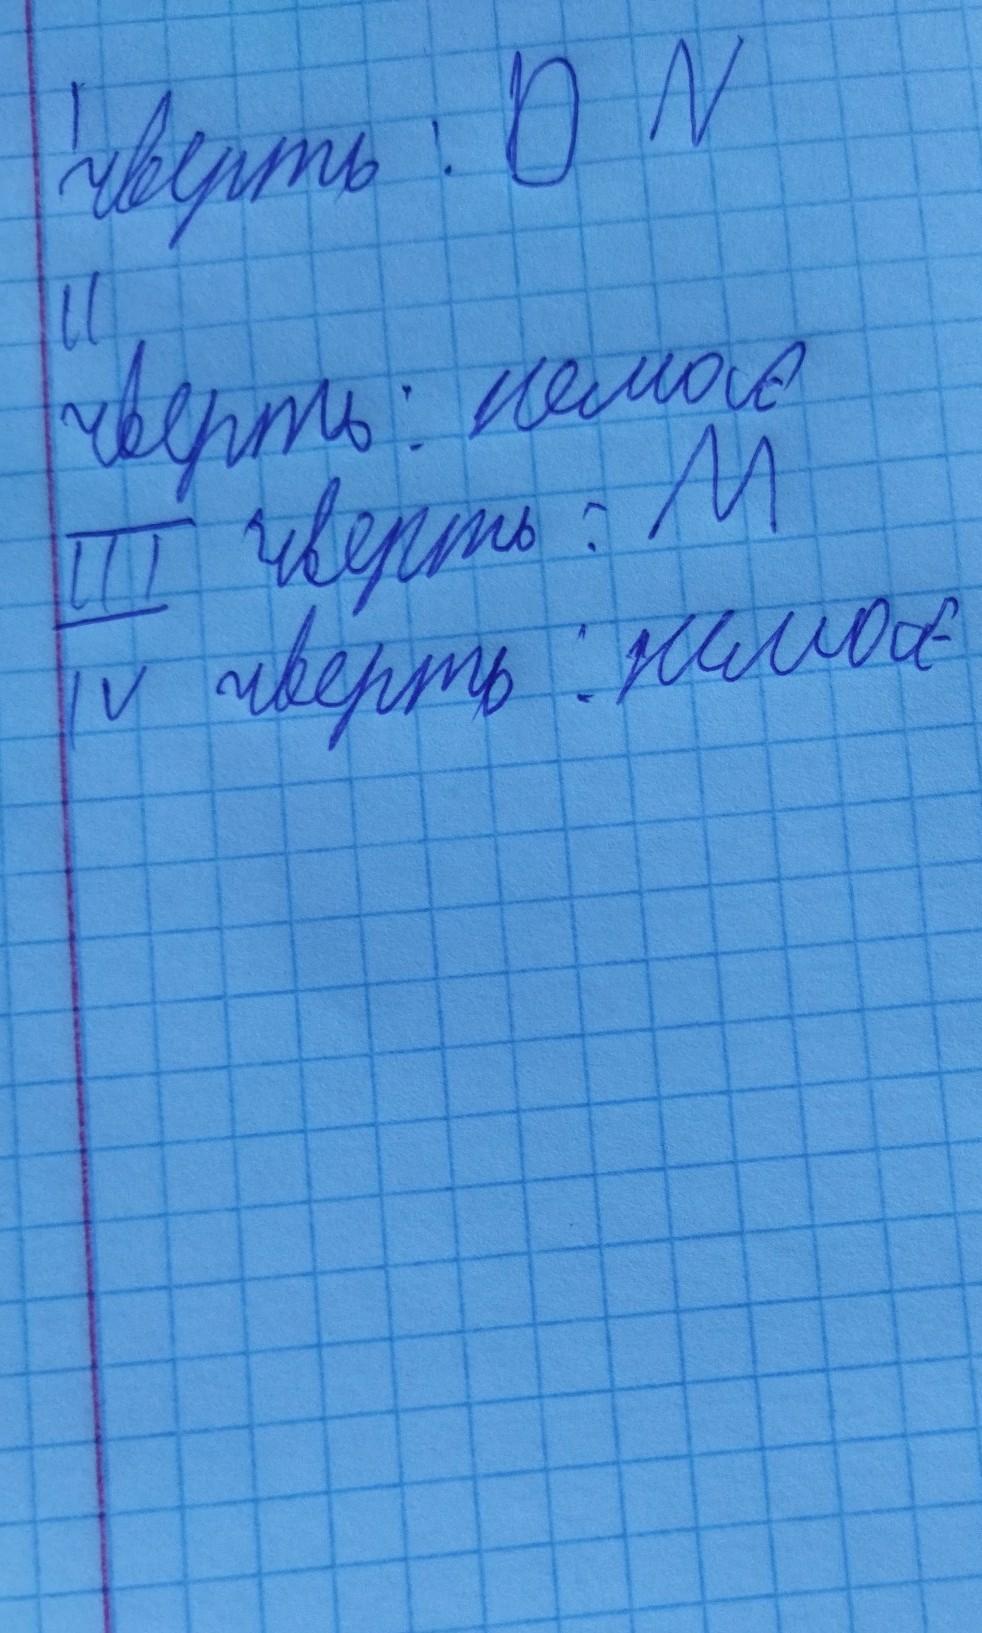 I
чверть: D N
II
чверть: немає
III чверть: M
IV чверть: немає